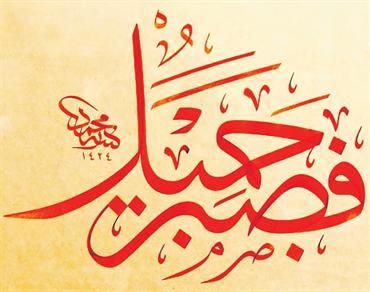 فصبر جميل
١٤٢٤